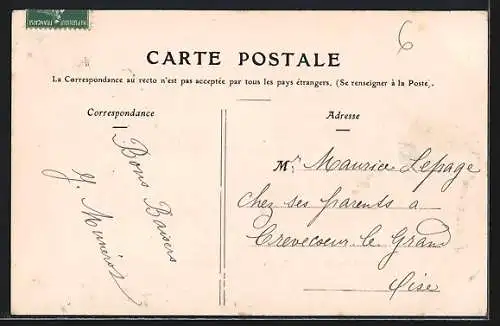 6
CARTE POSTALE
La Correspondance au recto n'est pas acceptée par tous les pays étrangers. (Se renseigner à la Poste).
Correspondance
Bons Baisers
Adresse
Mr Maurice Lepage
Chez ses parents a
Crevecoeur le Grand
Oise